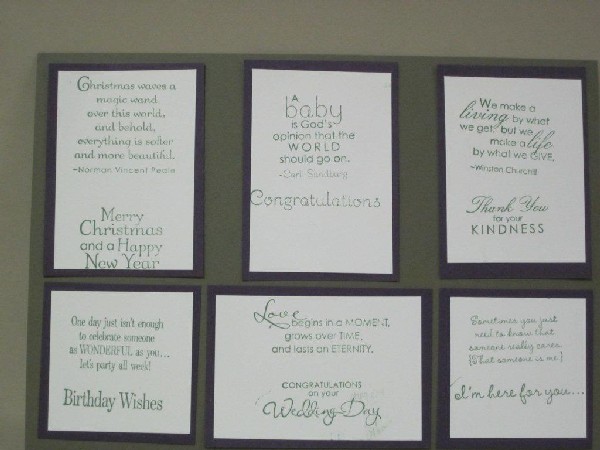 Christmas waves a
magic wand
over this world,
and behold,
everything is softer
and more beautiful.
~Norman Vincent Peale
Merry
Christmas
and a Happy
New Year
A
baby
is God's
opinion that the
WORLD
should go on.
~Carl Sandburg
Congratulations
We make a
living by what
we get, but we
make a life
by what we GIVE.
~Winston Churchill
Thank You
for your
KINDNESS
One day just isn't enough
to celebrate someone
as WONDERFUL as you...
let's party all week!
Birthday Wishes
Love
begins in a MOMENT,
grows over TIME,
and lasts an ETERNITY.
CONGRATULATIONS
on your
Wedding Day
Sometimes you just
need to know that
someone really cares.
[That someone is me.]
I'm here for you...